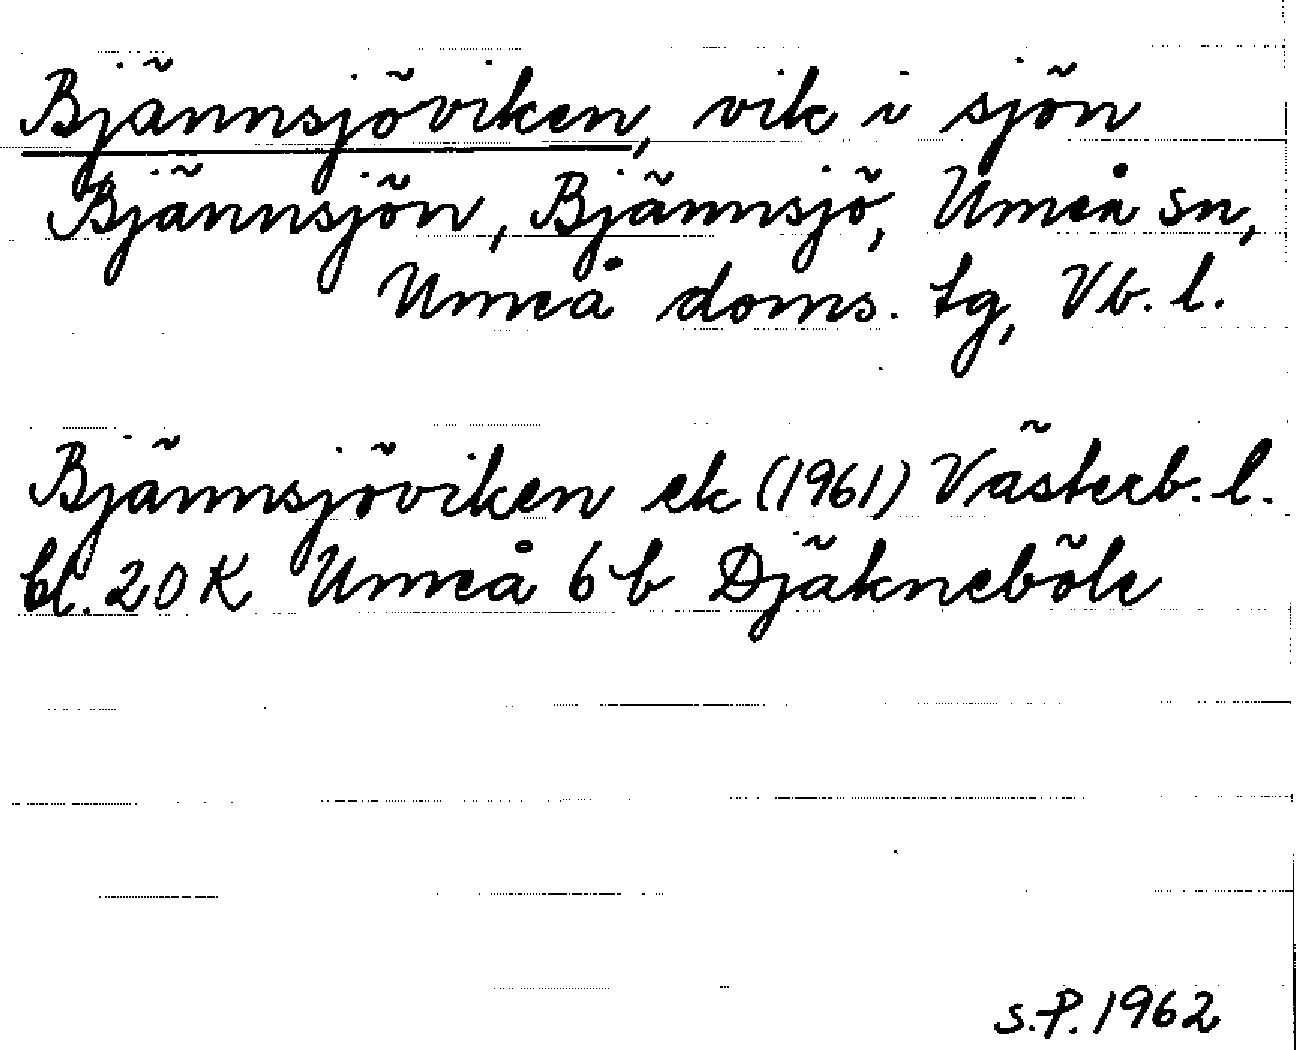 Bjännsjöviken, vik i sjön
Bjännsjön, Bjännsjö, Umeå sn,
Umeå doms. tg, Vb. l.
Bjännsjöviken ek (1961) Västerb. l.
bl. 20K Umeå 6b Djäkneböle
S.P. 1962